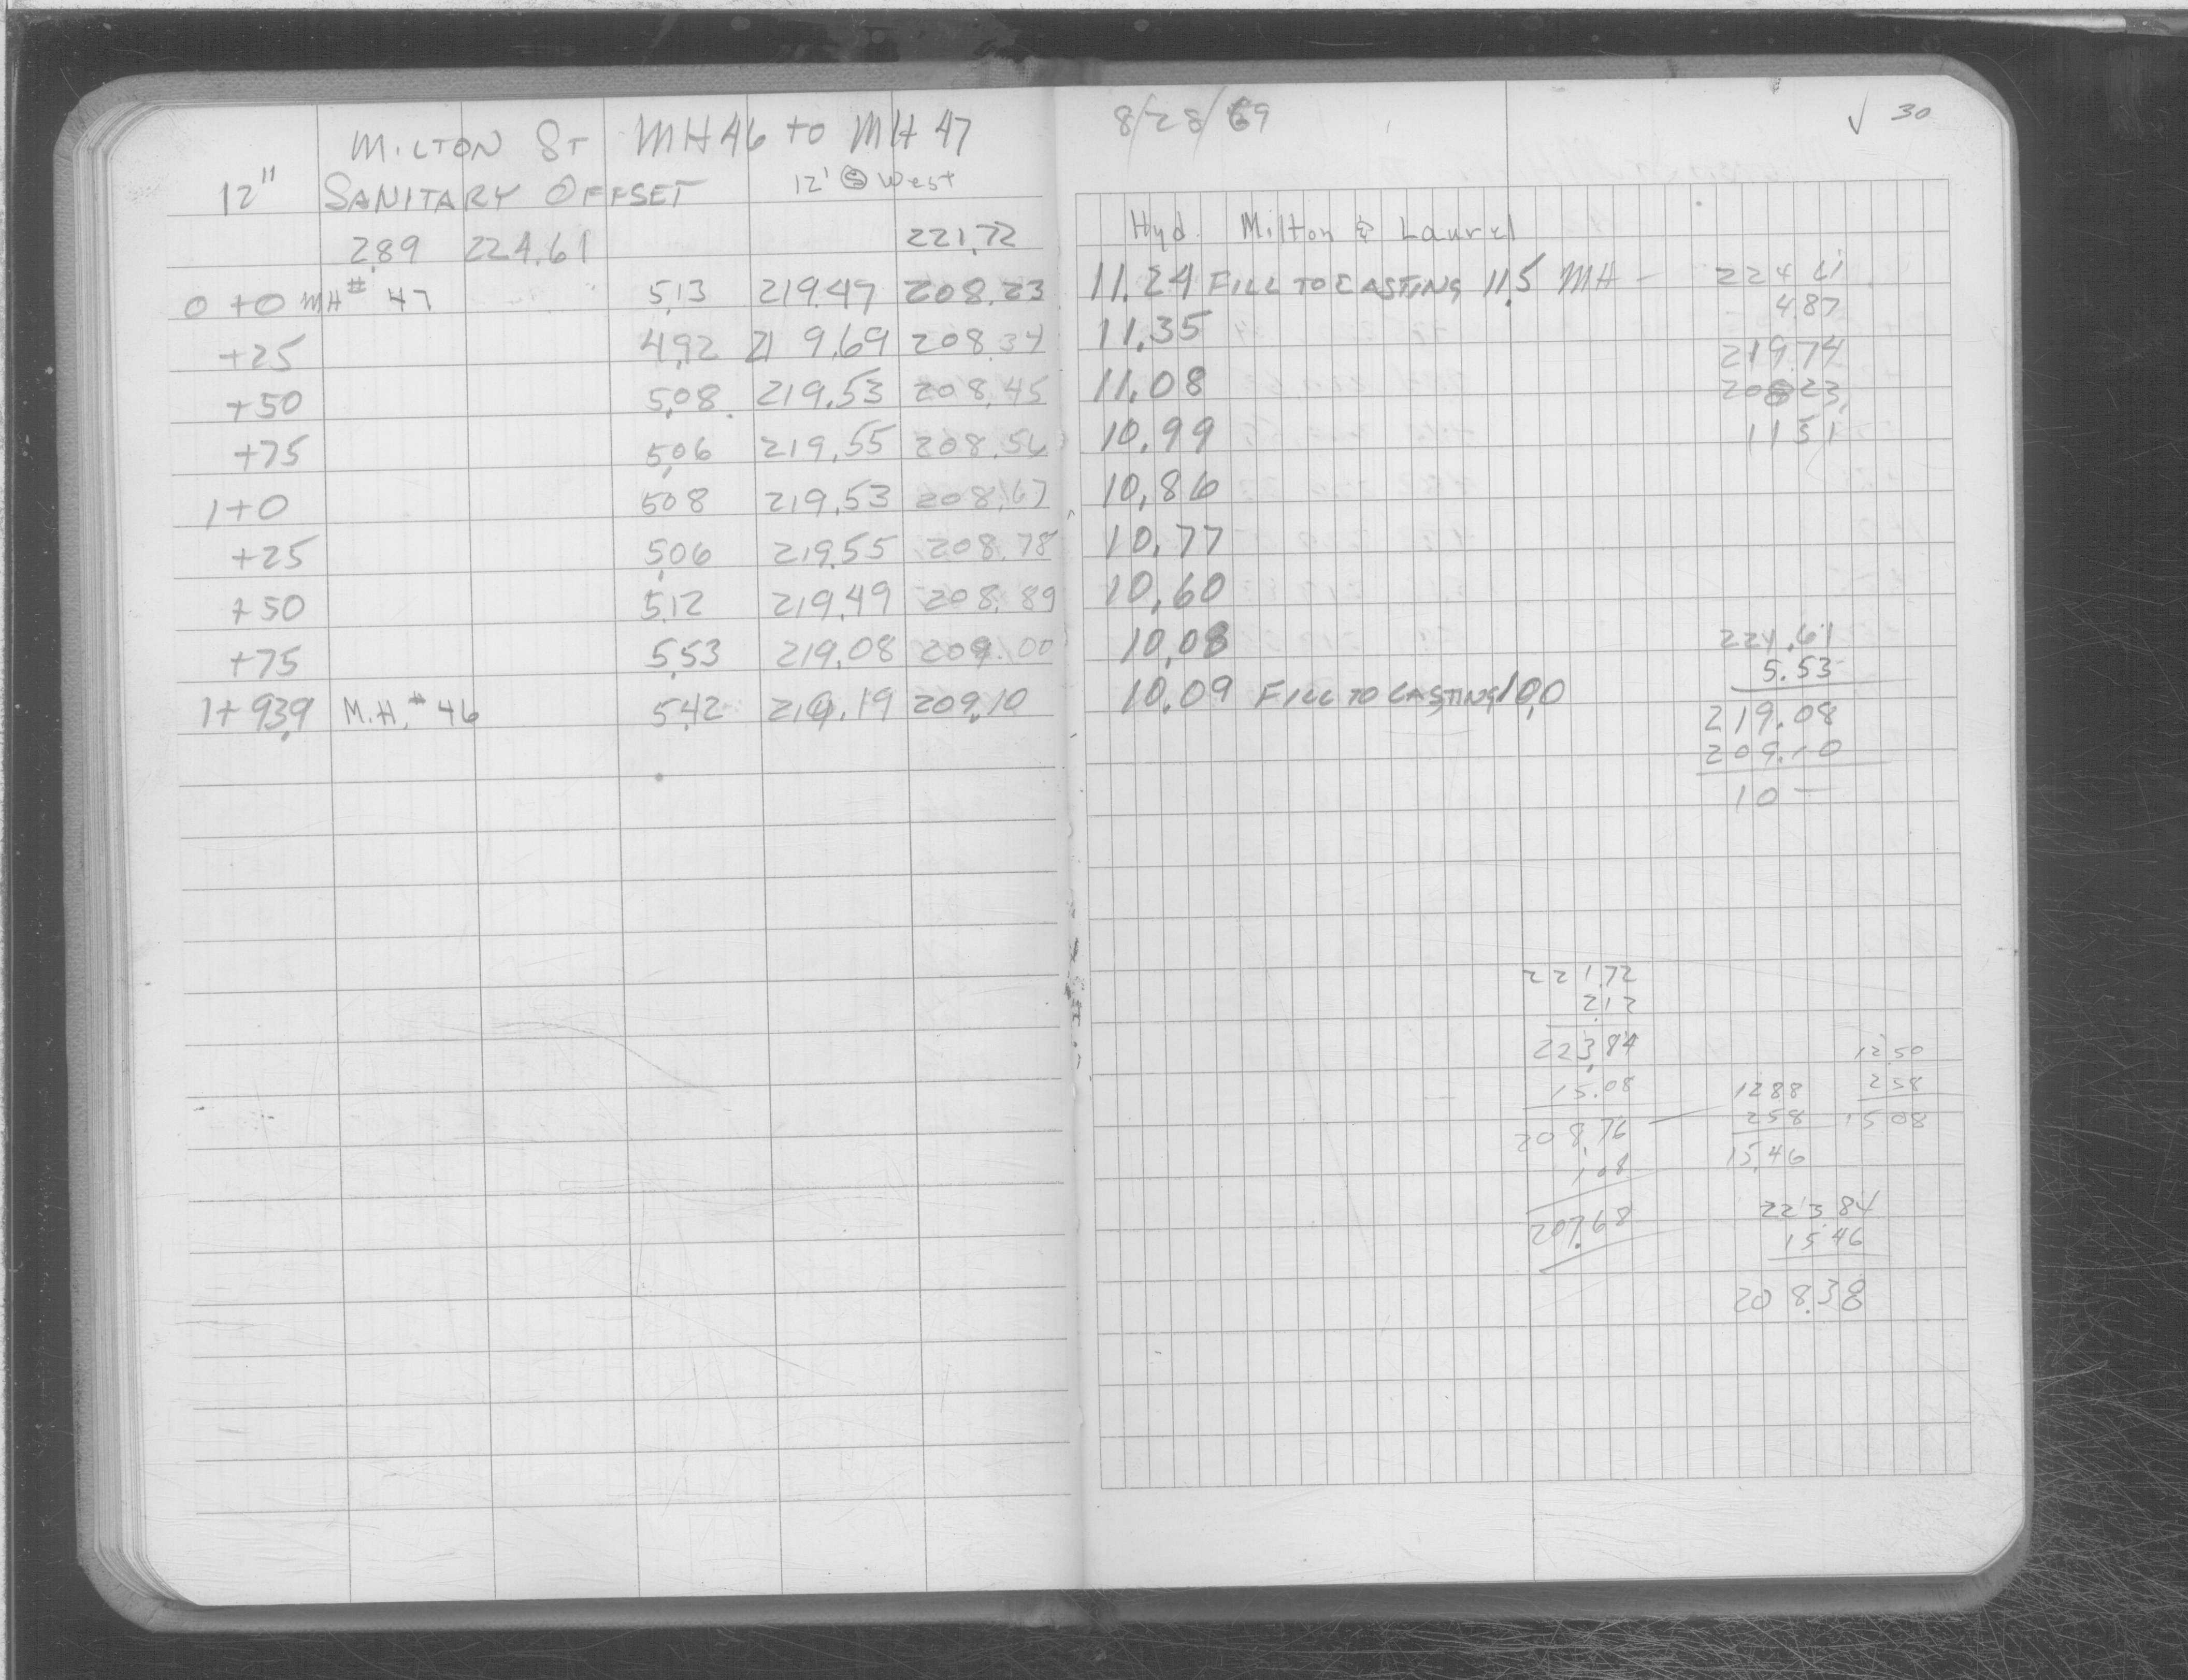 MILTON ST MH46 to MH 47
12" SANITARY OFFSET 12' West
2.89 224.61 221.72
0+0 MH# 47 5.13 219.47 208.23
+25 4.92 219.69 208.34
+50 5.08 219.53 208.45
+75 5.06 219.55 208.56
1+0 508 219.53 208.67
+25 5.06 219.55 208.78
+50 5.12 219.49 208.89
+75 5.53 219.08 209.00
1+93.9 M.H.# 46 5.42 219.19 209.10
8/28/69
√ 30
Hyd. Milton & Laurel
11.24 FILL TO CASTING 11.5 MH -
11.35
11.08
10.99
10.86
10.77
10.60
10.08
10.09 FILL TO CASTING 10.0
224 61
4.87
219.74
208 23
11 51
224.61
5.53
219.08
209.10
10 -
221.72
2.12
223.84
15.08
208.76
1.08
207.68
1288
258
15.46
12 50
2 58
15 08
223.84
15 46
208.38